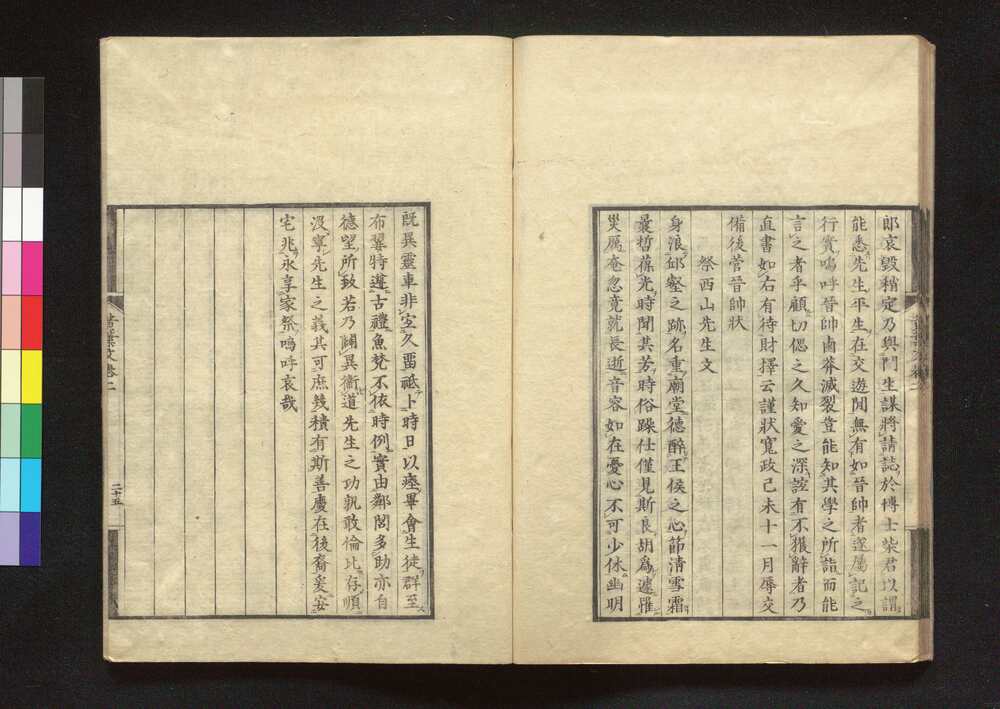 郎哀毀稍定乃與門生謀將請誌於博士柴君以謂
能悉先生平生在交遊間無有如晉帥者遂屬記之
行實嗚呼晉帥鹵莽滅裂豈能知其學之所詣而能
言之者乎顧切偲之久知愛之深誼有不獲辭者乃
直書如右有待財擇云謹狀寬政己未十一月辱交
備後菅晉帥狀
祭西山先生文
身浪邱壑之跡名重廟堂德醉王侯之心節清雪霜
曩哲葆光時聞其芳時俗躁仕僅見斯良胡爲遽罹
災厲奄忽竟就長逝音容如在憂心不可少休幽明
既異靈車非宜久留祗卜時日以瘞畢會生徒群至
布奠特遵古禮魚梵不依時例實由鄰閭多助亦自
德望所致若乃闢異衞道先生之功孰敢倫比存順
沒寧先生之義其可庶幾積有斯善慶在後裔爰安
宅兆永享家祭嗚呼哀哉
二十五